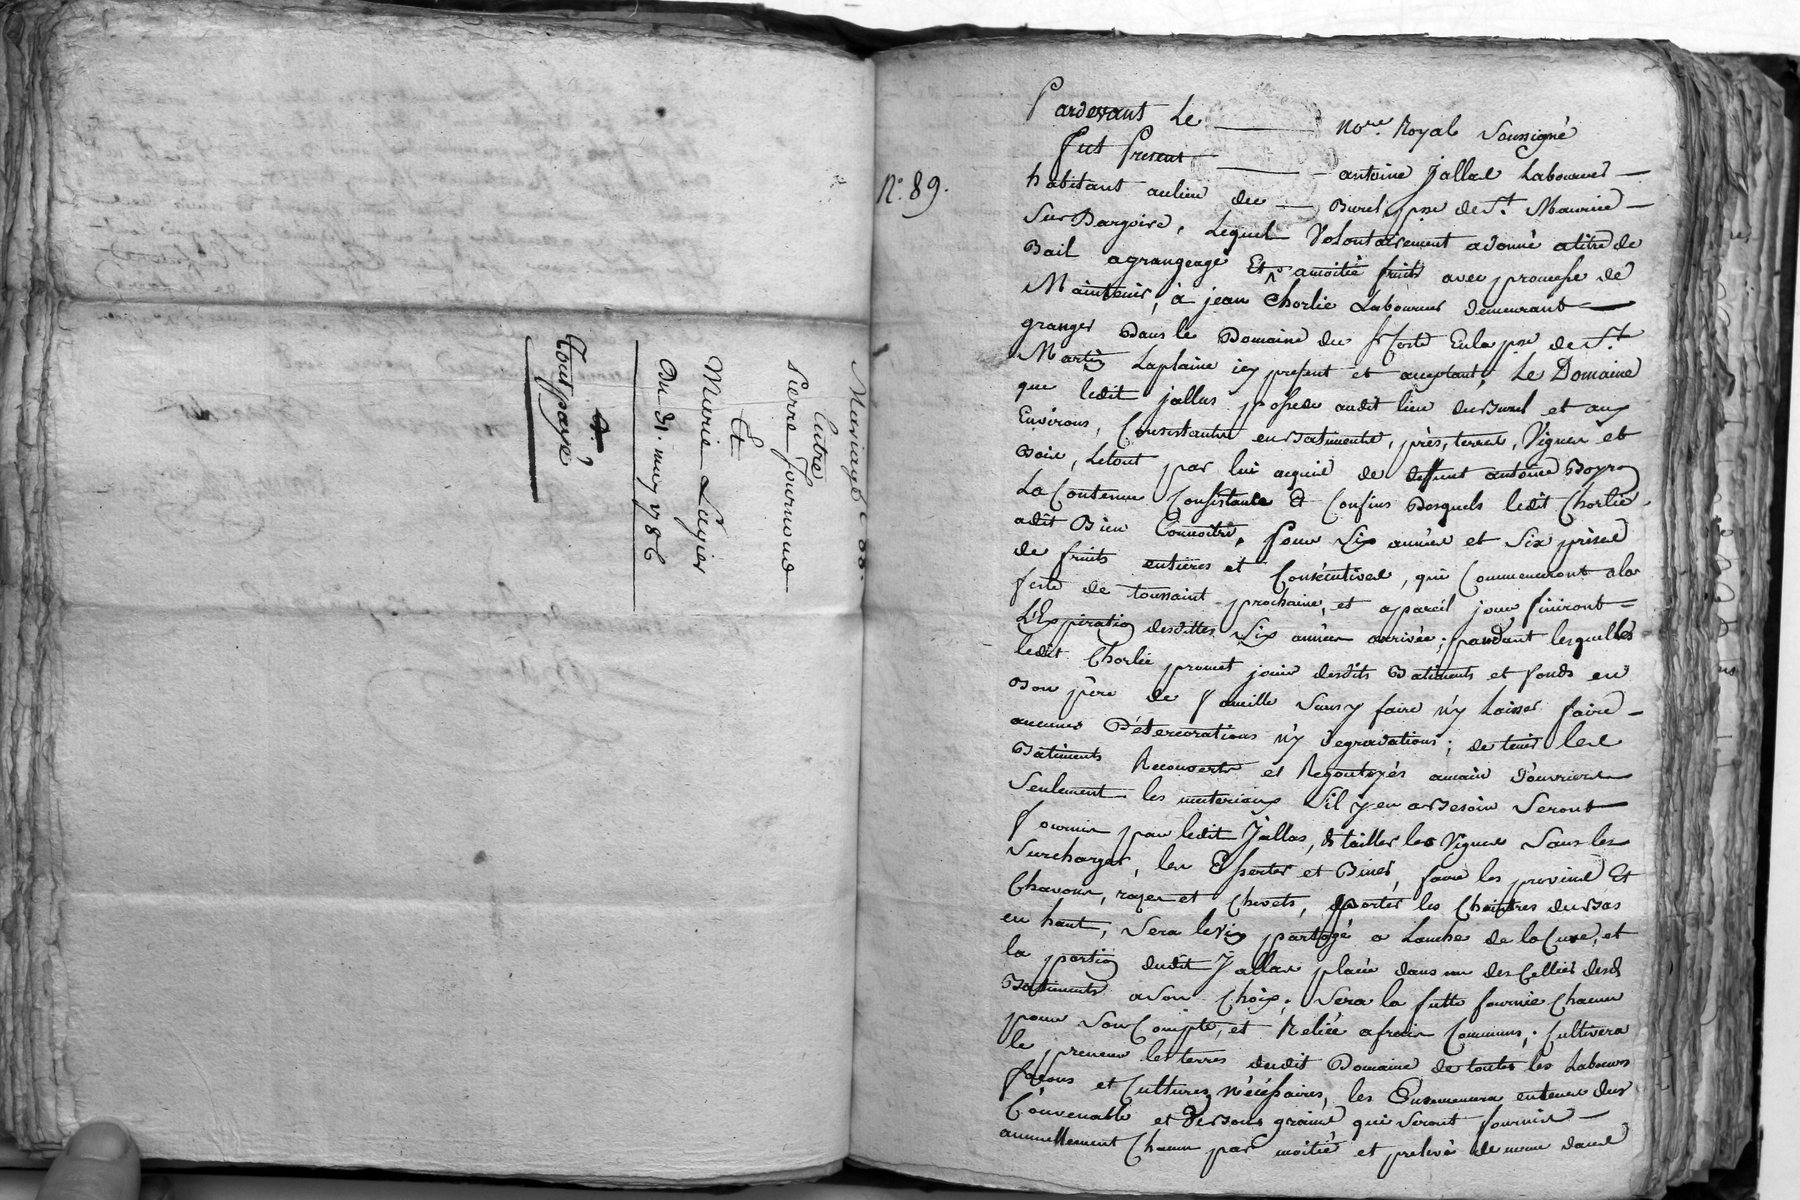 Mariage
Entre
Pierre Journoud
Et
Marie Laysier
Du 31. may 1786
Tout payé
N.° 89.
Pardevant Le — No.re Royal Soussigné
fut Present — antoine Jallas Laboureur —
habitant au lieu du — Burel, psse de St. Maurice —
Sur Dargoire, Lequel Volontairement a donné a titre de
Bail a grangeage Et a moitié fruits avec promesse de
Maintenir, à jean Chorlie Laboureur demeurant —
granger Dans le Domaine du Sr. En la psse de St.
Martin Laplaine icy present et acceptant, Le Domaine
que ledit jallas possede audit lieu du Burel et aux
Environs, Consistante en Batiments, près, terres, Vignes et
Bois, Letout par lui acquis de deffunt antoine
La Contenue Consistance Et Confins Desquels ledit Chorlie
a dit Bien Connoitre, Pour Six années et Six prises
de fruits entieres et Consécutives, qui Commenceront a la
feste de toussaint prochaine, et a pareil jour finiront —
L'Expiration desdittes Six années arrivée; pendant lesquelles
ledit Chorlie promet jouir desdits Batiments et fonds en
Bon père de famille Sans y faire n'y Laisser faire —
aucunes Déterorations n'y degradations; de tenir les
Batiments Recouverts et Regoutoyés a main d'ouvriers
Seulement les materiaux S'il y en a Besoin Seront
fournis par ledit Jallas, de tailler les Vignes Sans les
Surcharger, les et Biner, faire les provins Et
Chavons, rayes et Chevets, porter les Chaintres du Bas
en haut, Sera le Vin partagé a Lanche de la Cuve, et
la portion dudit Jallas placée dans un des Celliers desd.
Batiments a Son Choix; Sera la futte fournie Chacun
pour Son Compte, et Reliée a frais Communs; Cultivera
le preneur les terres dudit Domaine de toutes les Labours
façons et Cultures nécéssaires, les Ensemencera en tems dus
Convenable et de Bons grains qui Seront fournis —
annuellement Chacun par moitié et prelevé de meme dans